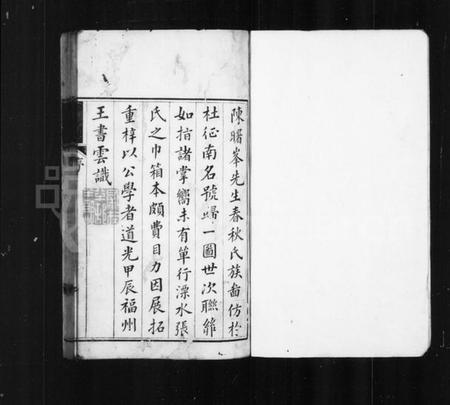 陳曙峯先生春秋氏族啚仿於
杜征南名號歸一圖世次聯絡
如指諸掌嚮未有單行溧水張
氏之巾箱本頗費目力因展拓
重梓以公學者道光甲辰福州
王書雲識
序